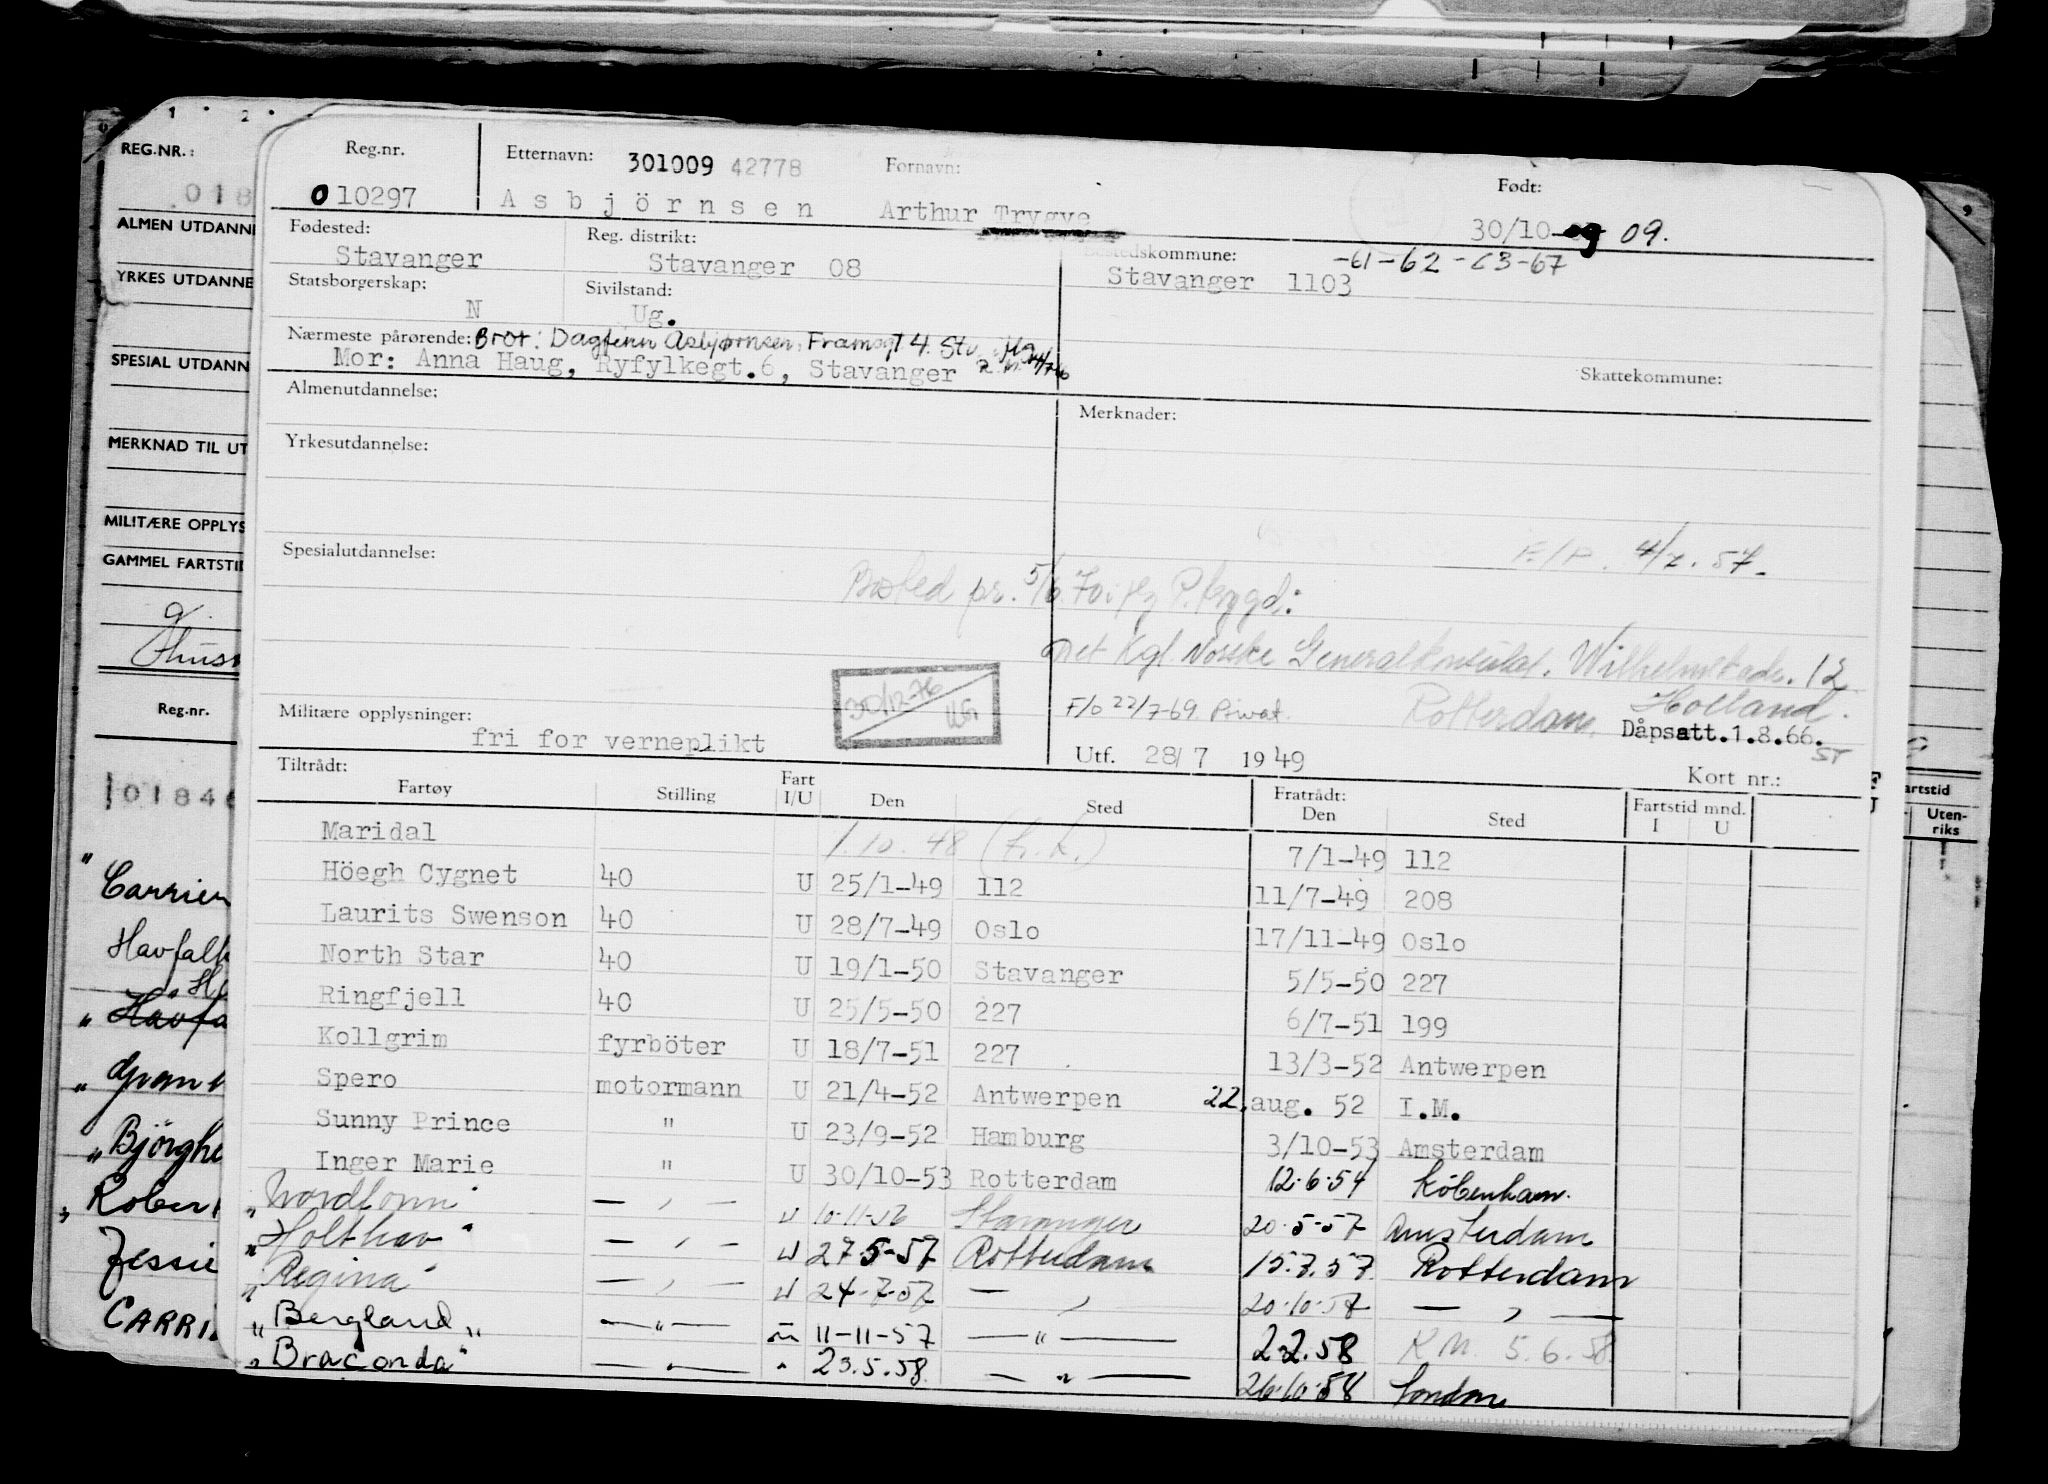 Reg.nr. Etternavn: 301009 42778 Fornavn: Født:
010297 Asbjörnsen Arthur Trygve 30/10- 09.
Fødested: Reg. distrikt: Bostedskommune: -61-62-63-67
Stavanger Stavanger 08 Stavanger 1103
Statsborgerskap: Sivilstand:
N Ug.
Nærmeste pårørende: Bror: Dagfinn Asbjørnsen, Framsgt 4. Stv.
Mor: Anna Haug, Ryfylkegt.6, Stavanger
Skattekommune:
Almenutdannelse: Merknader:
Yrkesutdannelse:
Spesialutdannelse: 4/2.57.
Bosted pr. 5/6 70
Det Kgl. Norske Generalkonsulat. Wilhelmskade. 12
Rotterdam, Holland.
30/12-76
F/o 22/7-69. Privat.
Dåpsatt.1.8.66.
ST
Militære opplysninger:
fri for verneplikt
Utf. 28/7 1949
Kort nr.:
Tiltrådt: Fratrådt:
Fartøy Stilling Fart I/U Den Sted Den Sted Fartstid mnd. I U
Maridal 1.10.48 7/1-49 112
Höegh Cygnet 40 U 25/1-49 112 11/7-49 208
Laurits Swenson 40 U 28/7-49 Oslo 17/11-49 Oslo
North Star 40 U 19/1-50 Stavanger 5/5-50 227
Ringfjell 40 U 25/5-50 227 6/7-51 199
Kollgrim fyrböter U 18/7-51 227 13/3-52 Antwerpen
Spero motormann U 21/4-52 Antwerpen 22. aug. 52 I.M.
Sunny Prince " U 23/9-52 Hamburg 3/10-53 Amsterdam
Inger Marie " U 30/10-53 Rotterdam 12.6.54 Köbenham.
" — , — U 10-11-56 Stavanger 20.5-57 Amsterdam
"Holthav" — , — U 27.5-57 Rotterdam 15.7.57. Rotterdam
"Regina" — , — U 24-7-57 — , — 20.10.57 — , —
"Bergland" — " — 11-11-57 — " — 2.2.58 5.6.58.
"Braconda" — " — " 23.5.58. — " — 26.10.58 London
REG.NR.:
018
ALMEN UTDANNE
YRKES UTDANNE
SPESIAL UTDANN
MERKNAD TIL UT
MILITÆRE OPPLYS
GAMMEL FARTSTID
Reg.nr.
01846
Carrier
Havfalk
Björghe
Rober
Jessie
CARRI
artstid
Uten-
riks